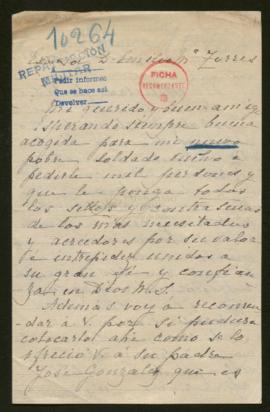 10264
REPATRIACIÓN
MILITAR
Pedir informes
Que se hace así
Devolver
FICHA
Emilio Mª Torres
Mi querido y buen amigo
Esperando siempre buena
acogida para mi nuevo
pobre soldado vuelvo a
pedirle mil perdones y
que le ponga todos
los sellos y contraseñas
de los más necesitados
y acreedores por su valor
e intrepidez unidos a
su gran fé y confian
za en Dios N. S.
Además voy a recomen
dar á V. por si pudiera
colocarlo ahi como se lo
ofreció V. a su padre
José Gonzalez que es